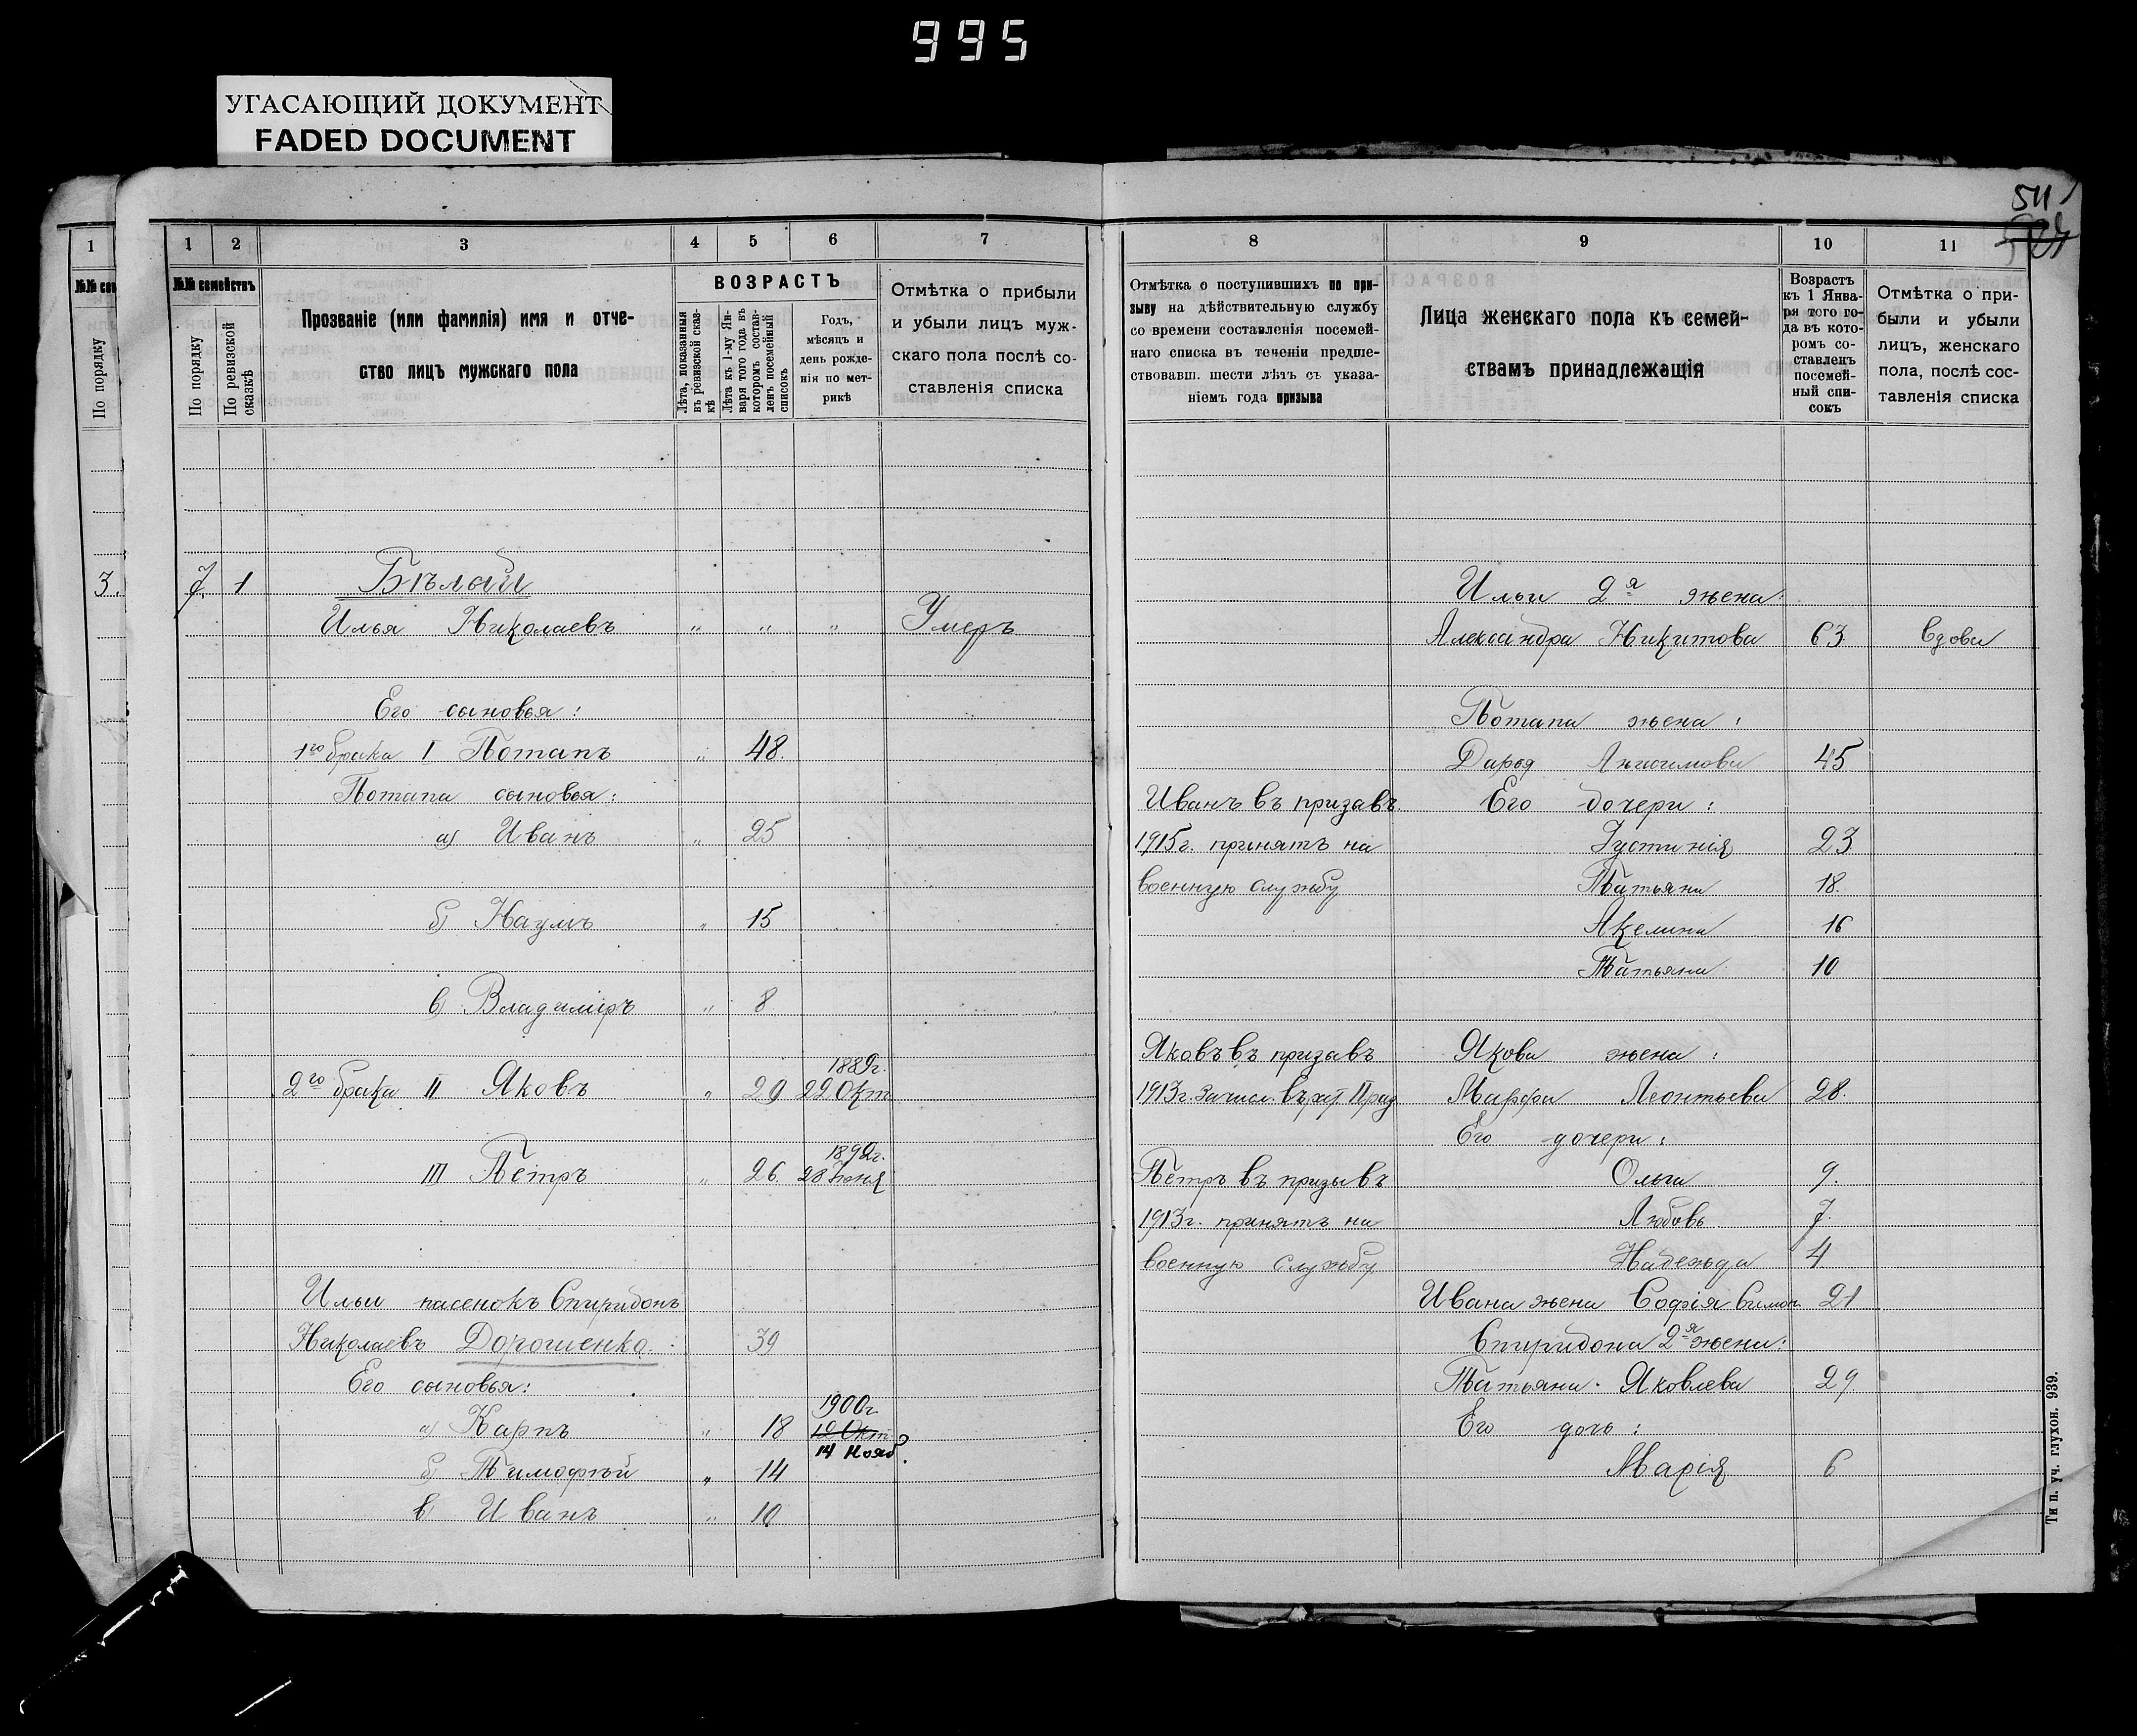 995
УГАСАЮЩИЙ ДОКУМЕНТ
FADED DOCUMENT
511
1
№№ сем
По порядку
3.
1 2 3 4 5 6 7
№№ семействъ
По порядку
По ревизской сказкѣ
Прозваніе (или фамилія) имя и отче-
ство лицъ мужскаго пола
ВОЗРАСТЪ
Лѣта, показанныя въ ревизской сказ-кѣ
Лѣта къ 1-му Ян-варя того года въ которомъ состав-ленъ посемейный списокъ
Годъ,
мѣсяцъ и
день рожде-
нія по мет-
рикѣ
Отмѣтка о прибыли
и убыли лицъ муж-
скаго пола послѣ со-
ставленія списка
7. 1 Бѣлай
Илья Николаевъ " " " Умеръ
Его сыновья:
1го брака I Потапъ " 48.
Потапа сыновья:
а) Иванъ " 25
б) Наумъ " 15
в) Владиміръ " 8
1889г.
2го брака II Яковъ " 29 22 Окт
1892г.
III Петръ " 26. 28 Іюня
Ильи пасенокъ Спиридонъ
Николаевъ Дорошенко. 39
Его сыновья:
1900г.
а) Карпъ " 18 19 Окт
14 Нояб?
б) Тимофѣй " 14
в) Иванъ " 10
8 9 10 11
Отмѣтка о поступившихъ по при-
зыву на дѣйствительную службу
со времени составленія посемей-
наго списка въ теченіи предше-
ствовавш. шести лѣтъ съ указа-
ніемъ года призыва
Лица женскаго пола къ семей-
ствамъ принадлежащія
Возрастъ
къ 1 Янва-
ря того го-
да въ кото-
ромъ со-
ставленъ
посемей-
ный спи-
сокъ
Отмѣтка о при-
были и убыли
лицъ, женскаго
пола, послѣ сос-
тавленія списка
Ильи 2я жена:
Александра Никитова 63. Вдова
Потапа жена:
Дарья Анисимова 45
Иванъ въ призавъ Его дочери:
1915г. принятъ на Іустинія 23.
военную службу Татьяна 18.
Акелина 16
Татьяна 10
Яковъ въ призавъ Якова жена:
1913г. зачисл. въ рат II раз Марфа Леонтьева 28.
Его дочери:
Петръ въ призывъ Ольга 9.
1913г. принятъ на Любовь 7.
военную службу Надежда 4.
Ивана жена Софія Симон. 21
Спиридона 2я жена:
Татьяна Яковлева 29
Его дочь:
Марія 6
Тип. уч. глухон. 939.